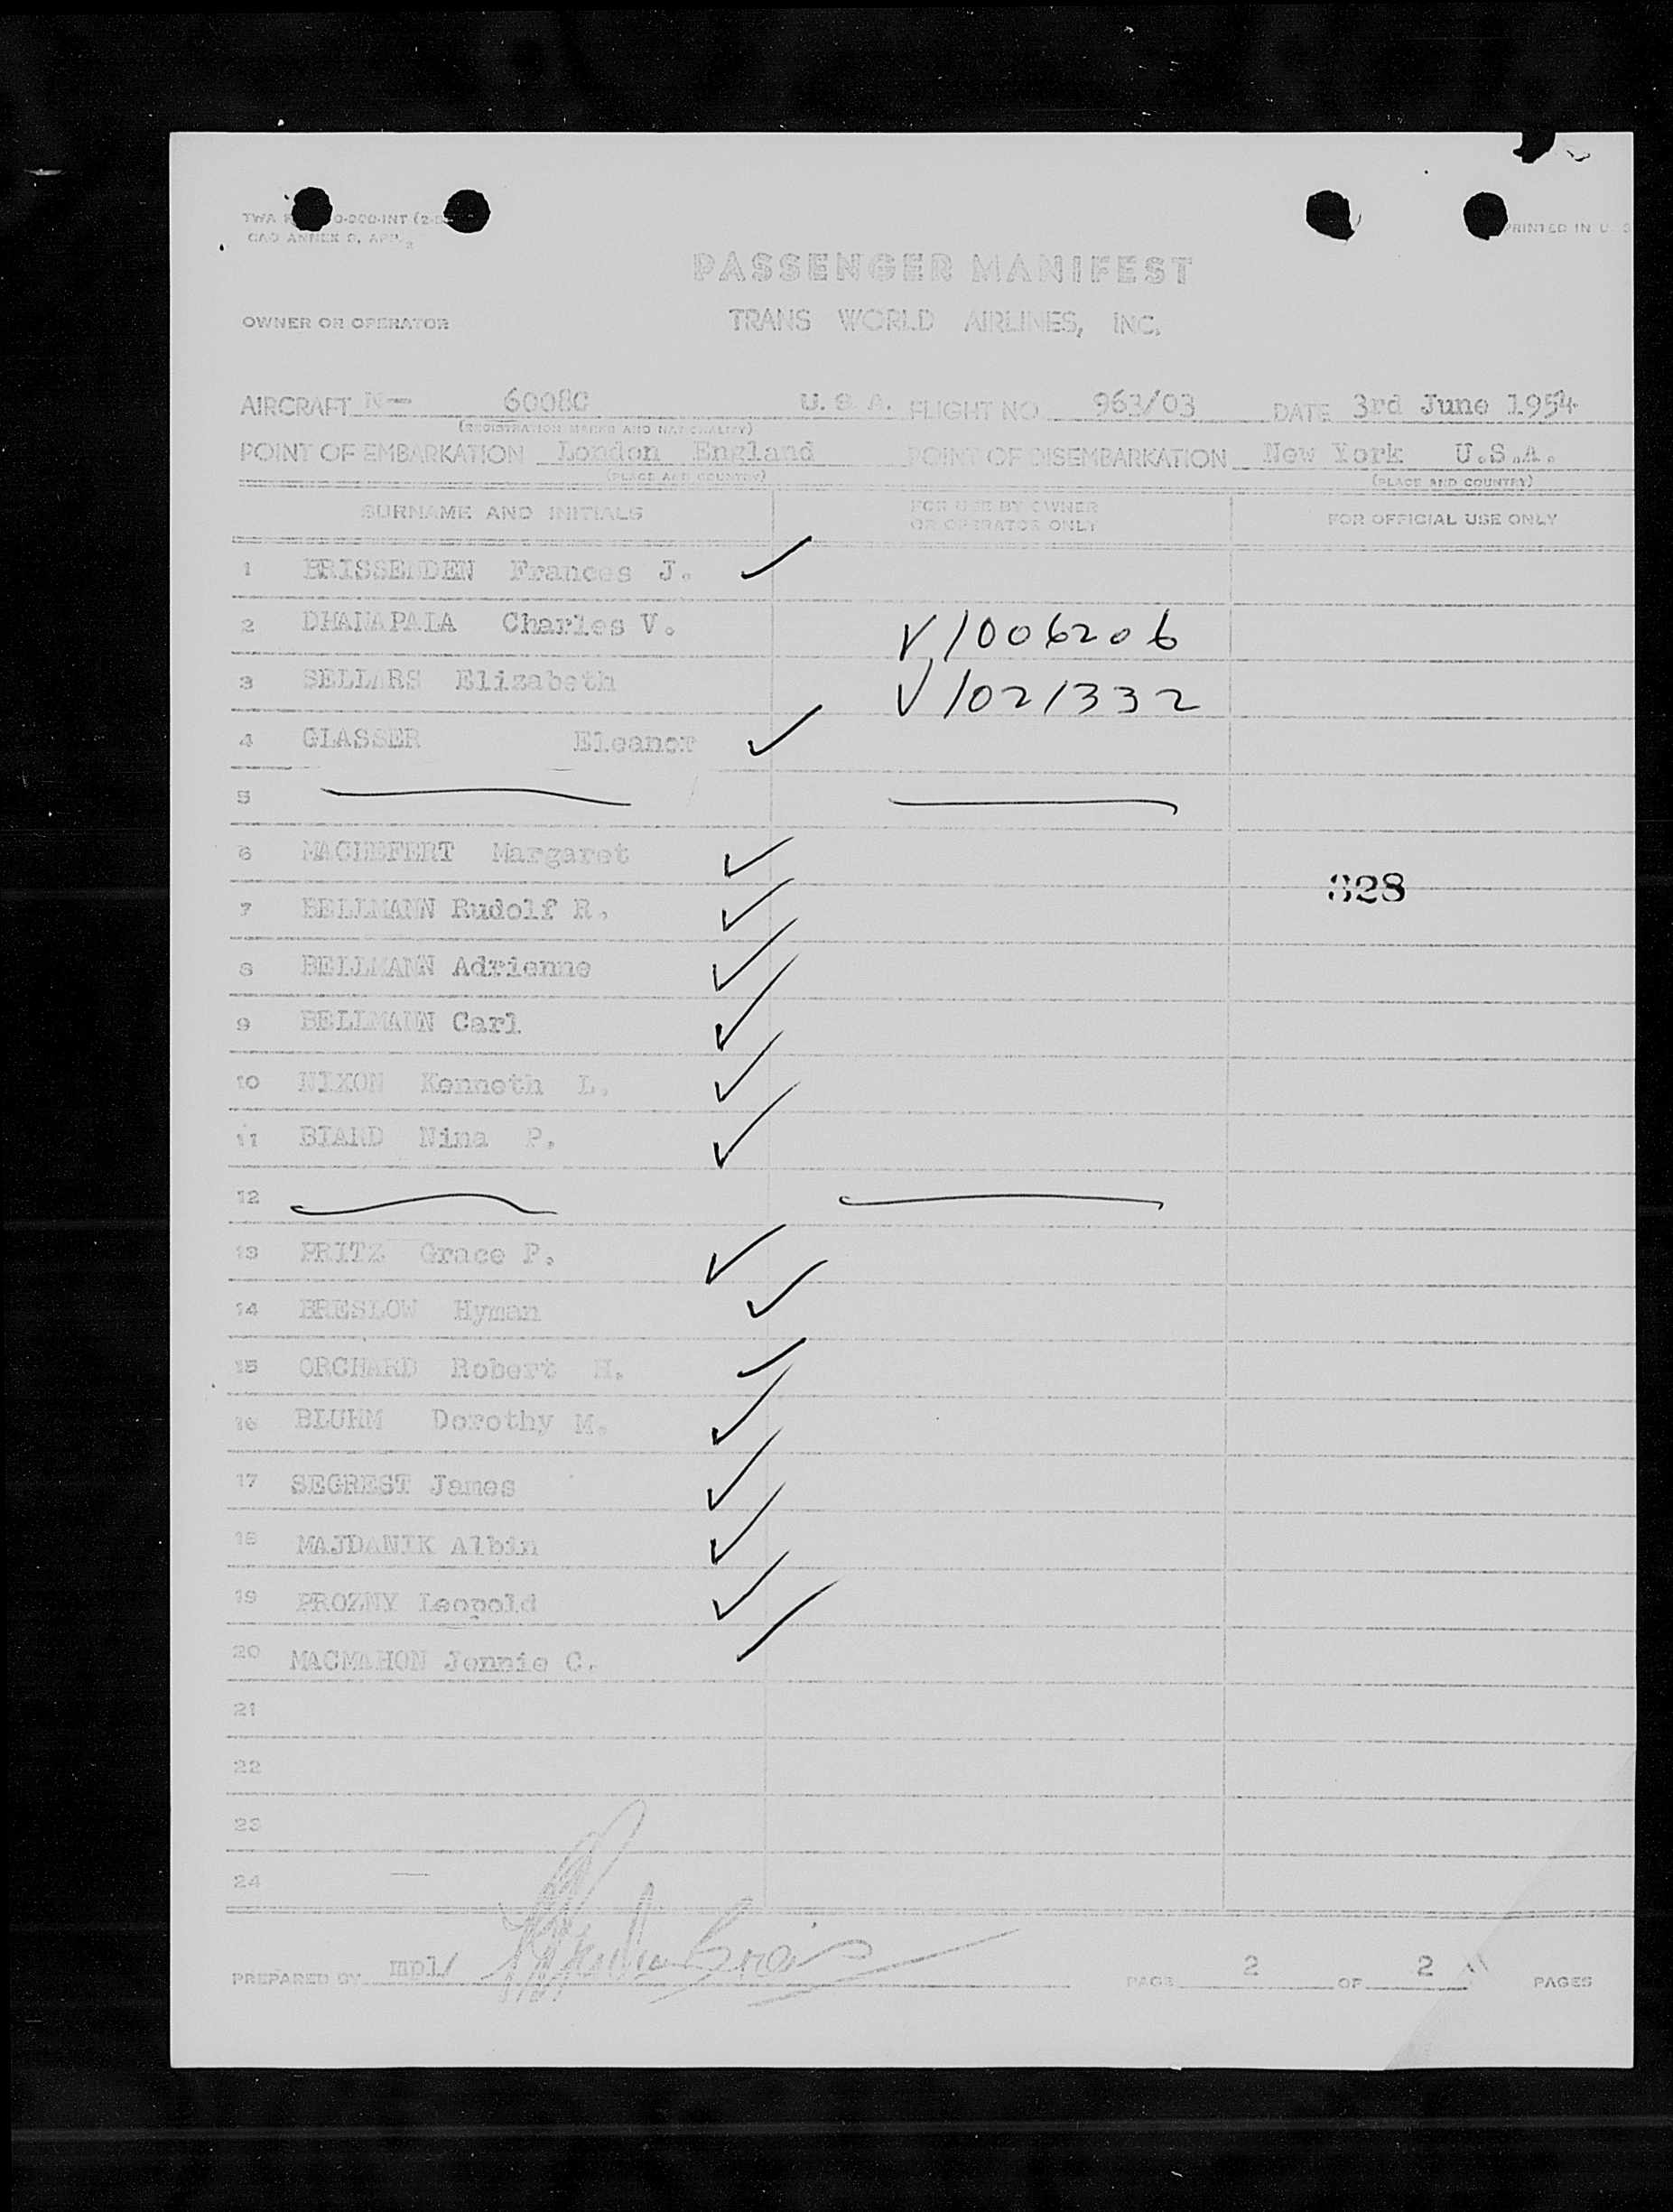 CAO ANNEX 9, APP. 2
PRINTED IN U. S
PASSENGER MANIFEST
OWNER OR OPERATOR TRANS WORLD AIRLINES, INC.
AIRCRAFT N- 6008C U. S. A. FLIGHT NO 963/03 DATE 3rd June 1954
(REGISTRATION MARKS AND NATIONALITY)
POINT OF EMBARKATION London England POINT OF DISEMBARKATION New York U.S.A.
(PLACE AND COUNTRY) (PLACE AND COUNTRY)
SURNAME AND INITIALS FOR USE BY OWNER OR OPERATOR ONLY FOR OFFICIAL USE ONLY
1 BRISSENDEN Frances J. ✓
2 DHANAPALA Charles V. V1006206
3 SELLARS Elizabeth V1021332
4 GLASSER Eleanor ✓
5
6 Margaret ✓
328
7 BELLMANN Rudolf R. ✓
8 BELLMANN Adrienne ✓
9 BELLMANN Carl ✓
10 NIXON Kenneth L. ✓
11 BIARD Nina P. ✓
12
13 PRITZ Grace F. ✓
14 BRESLOW Hyman ✓
15 ORCHARD Robert H. ✓
16 BLUHM Dorothy M. ✓
17 SEGREST James ✓
18 MAJDANIK Albin ✓
19 PROZNY Leopold ✓
20 MACMAHON Jennie C.
21
22
23
24
PREPARED BY mpl/ PAGE 2 OF 2 PAGES